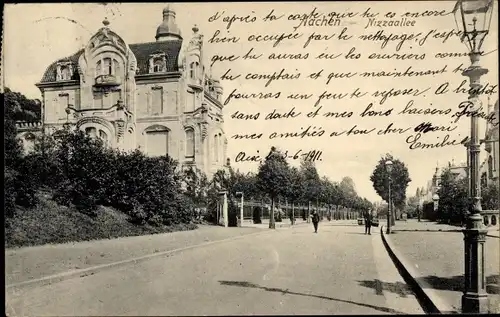 Aachen Nizzaallee
d'après ta carte que tu es encore
bien occupée par le nettoyage, j'espère
que tu auras eu les ouvriers comme
tu comptais et que maintenant tu
pourras un peu te reposer. A bientôt
sans doute et mes bons baisers,
mes amitiés a ton cher Mari
Emilie
Aix 3-6-1911.